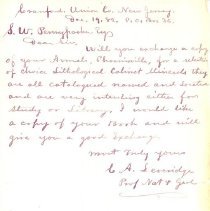 Cranford, Union Co. New Jersey.
Dec. 19. 82. P.O. Box 36.
S. W. Pennypacker Esq
Dear Sir
Will you exchange a copy
of your Annals, Phoenixville, for a selection
of choice Lithological Cabinet Minerals they
are all catalogued named and location
and are very interesting either for
Study or Library, I would like
a copy of your Book and will
give you a good Exchange.
Most truly yours
C. A.
Prof Nat & Geol